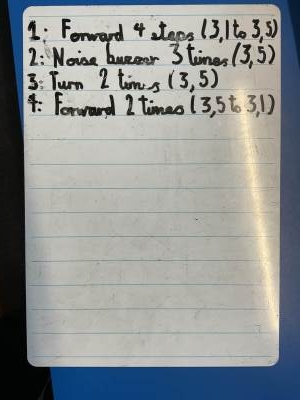 1: Forward 4 steps (3,1 to 3,5)
2: Noise buzzer 3 times (3,5)
3: Turn 2 times (3,5)
4: Forward 2 times (3,5 to 3,1)